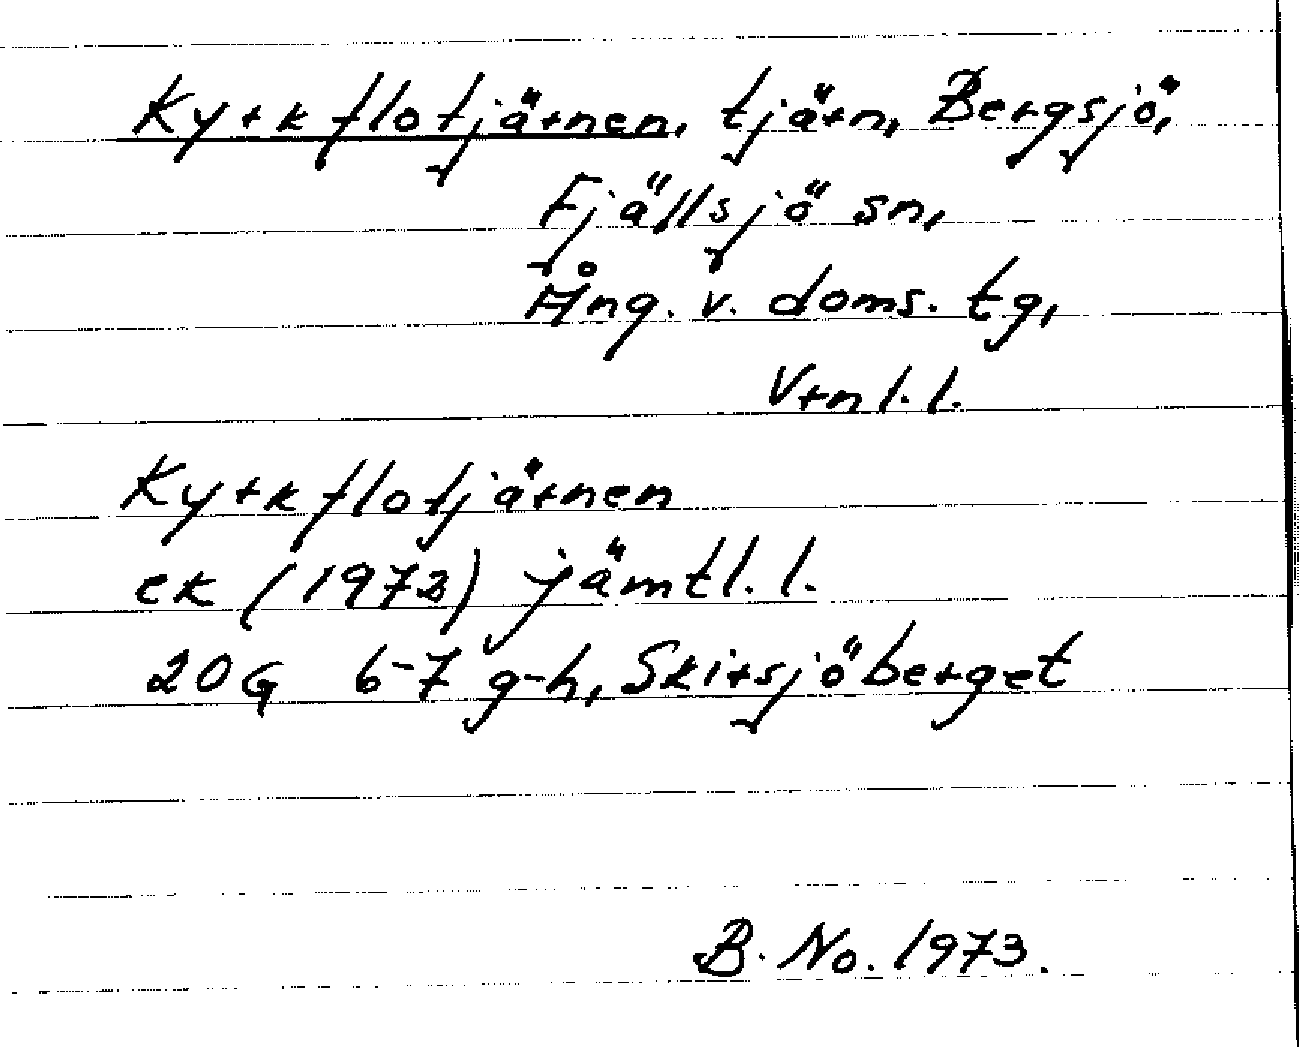 Kyrkflotjärnen, tjärn, Bergsjö,
Fjällsjö sn,
Ång. v. doms. tg,
Vrnl. l.
Kyrkflotjärnen
ek (1973) jämtl. l.
20G 6-7 g-h, Skirsjöberget
B. No. 1973.